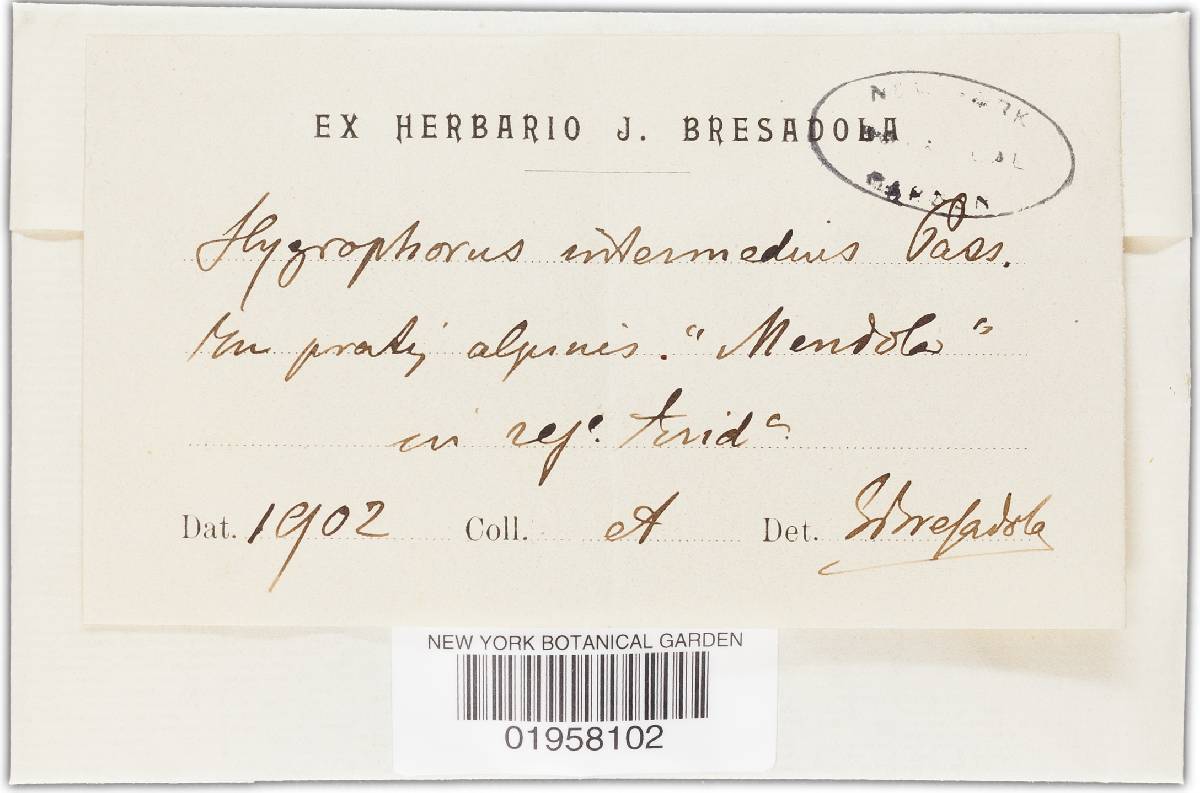 EX HERBARIO J. BRESADOLA
NEW YORK
BOTANICAL
GARDEN
Hygrophorus intermedius Pass.
In pratis alpinis. "Mendola"
in regᵉ. Tridᵃ
Dat. 1902 Coll. et Det. J Bresadola
NEW YORK BOTANICAL GARDEN
01958102